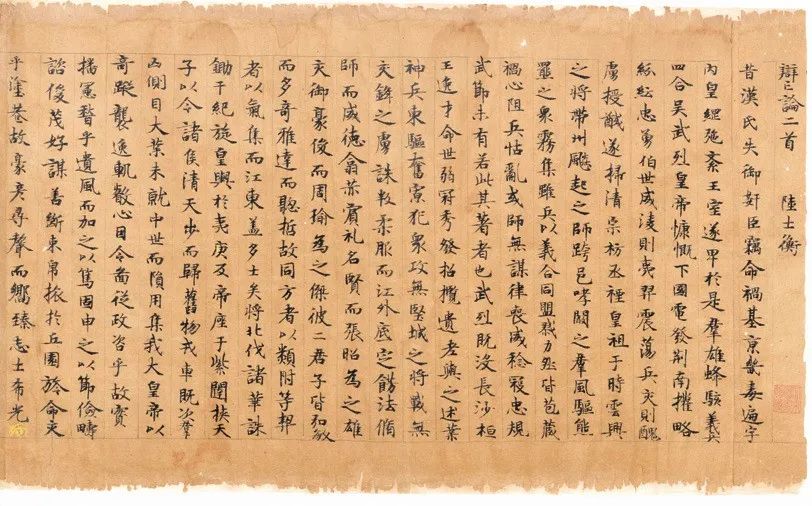 辯亡論二首　陸士衡
昔漢氏失御奸臣竊命禍基京畿毒遍宇
內皇綱弛紊王室遂卑於是羣雄蜂駭義兵
四合吳武烈皇帝慷慨下國電發荊南權略
紛紜忠勇伯世威淩則夷羿震蕩兵交則醜
虜授馘遂掃清宗祊丞禋皇祖于時雲興
之將帶州飈起之師跨邑哮闞之羣風驅熊
羆之衆霧集雖兵以義合同盟戮力然皆苞藏
禍心阻兵怙亂或師無謀律喪威稔寇忠規
武節未有若此其著者也武烈既沒長沙桓
王逸才命世弱冠秀發招攬遺老與之述業
神兵東驅奮寡犯衆攻無堅城之將戰無
交鋒之虜誅叛柔服而江外底定飭法脩
師而威德翕赫賓礼名賢而張昭為之雄
交御豪俊而周瑜為之傑彼二君子皆弘敏
而多奇雅達而聰哲故同方者以類附等契
者以氣集而江東蓋多士矣將北伐諸華誅
鋤干紀旋皇輿於夷庚反帝座于紫闥挾天
子以令諸侯清天步而歸舊物戎車既次羣
凶側目大業未就中世而隕用集我大皇帝以
奇蹤襲逸軌叡心因令圖從政咨乎故實
播憲稽乎遺風而加之以篤固申之以節儉疇
諮俊茂好謀善斷束帛旅於丘園旌命交
乎塗巷故豪彥尋聲而響臻志士希光